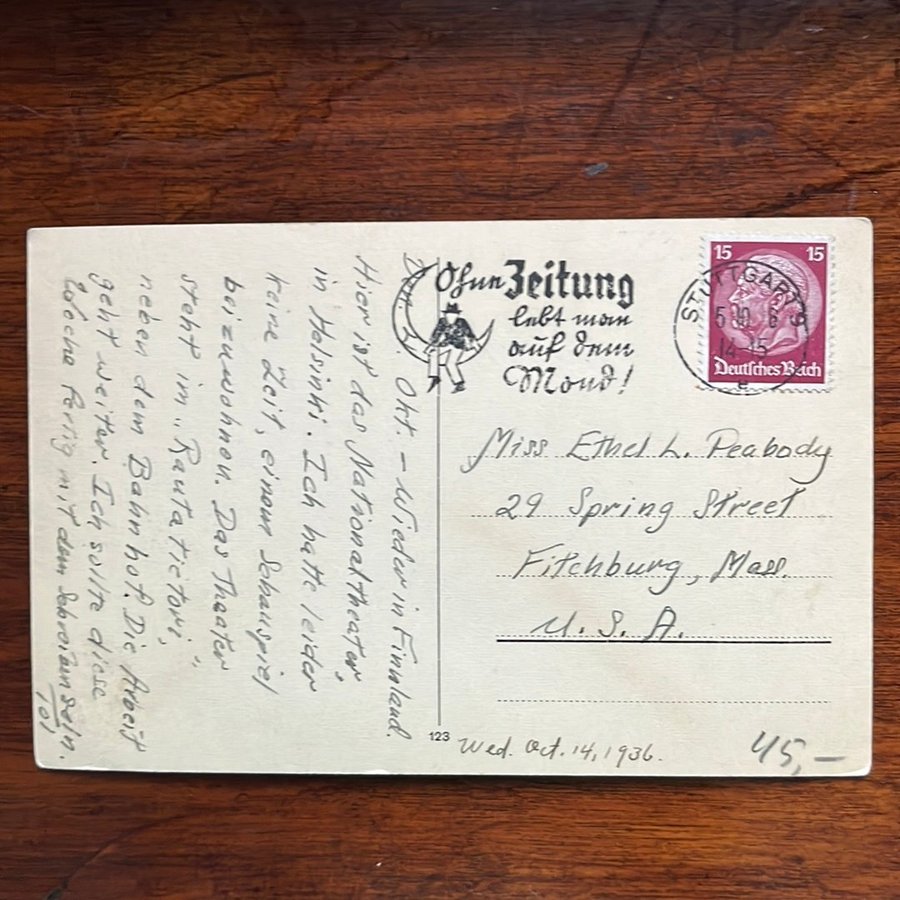 Ohne Zeitung
lebt man
auf dem
Mond!
15 15
STUTTGART 9
14-15
e
Deutsches Reich
Okt. – Wieder in Finnland.
Hier ist das Nationaltheater,
in Helsinki. Ich hatte leider
keine Zeit, einem Schauspiel
beizuwohnen. Das Theater
steht im „Rautatietori,“
neben dem Bahnhof. Die Arbeit
geht weiter. Ich sollte diese
Woche fertig mit dem Schreiben sein.
Miss Ethel L. Peabody
29 Spring Street
Fitchburg, Mass.
U. S. A.
123
Wed. Oct. 14, 1936.
45,–